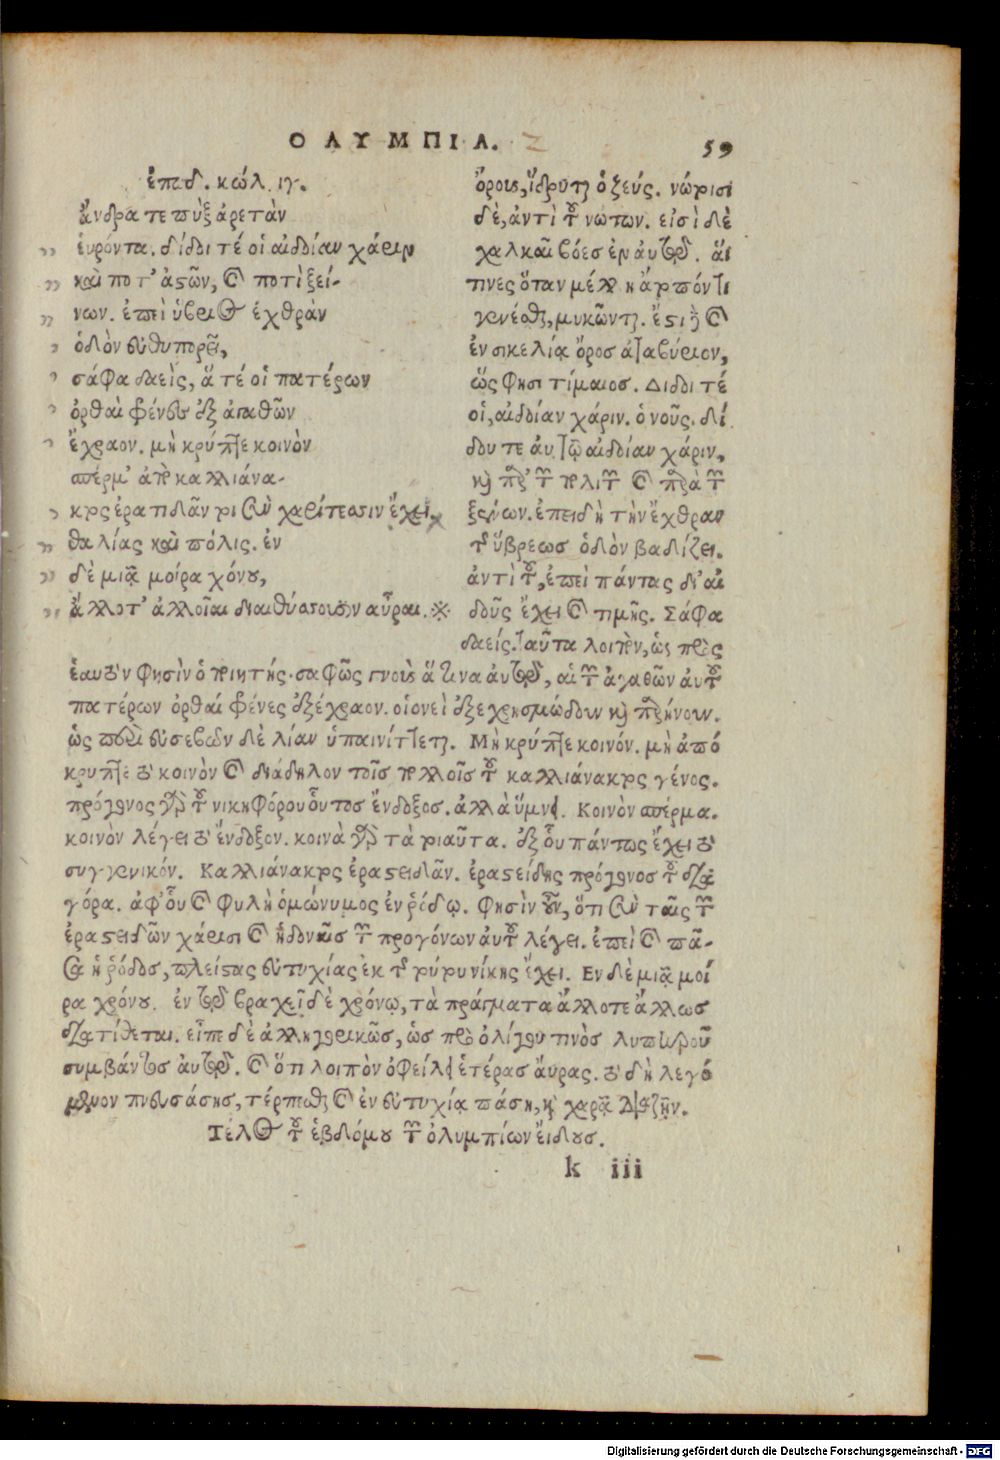 ΟΛΥΜΠΙΑ. 2 59
ἐπῳδ. κώλ. ιγ.
ἄνδρα τε πὺξ ἀρετὰν
εὑρόντα. δίδοι τέ οἱ αἰδοίαν χάριν
καὶ ποτ' ἀστῶν, καὶ ποτὶ ξεί-
νων. ἐπεὶ ὕβριος ἐχθρὰν
ὁδὸν εὐθυπορεῖ,
σάφα δαεὶς, ἅ τέ οἱ πατέρων
ὀρθαὶ φρένες ἐξ ἀγαθῶν
ἔχραον. μὴ κρύπτε κοινὸν
σπέρμ' ἀπὸ καλλιάνα-
κτος ἐρατιδᾶν τοι σὺν χαρίτεσιν ἔχει
θαλίας καὶ πόλις. ἐν
δὲ μιᾷ μοίρᾳ χόνου,
ἄλλοτ' ἀλλοῖαι διαιθύσσουσιν αὖραι. ※
ὄρους, ἵδρυται ὁ ζεύς. νώτοισι
δὲ, ἀντὶ τοῦ νώτων. εἰσὶ δὲ
χαλκαῖ βόες ἐν αὐτῷ. αἵ
τινες ὅταν μέλλῃ ἄτοπόν τι
γενέσθαι, μυκῶνται. ἔστι δὲ καὶ
ἐν σικελίᾳ ὄρος ἀταβύριον,
ὥς φησι τίμαιος. Δίδοι τέ
οἱ, αἰδοίαν χάριν. ὁ νοῦς. δί
δου τε αὐτῷ αἰδοίαν χάριν,
καὶ παρὰ τῶν πολιτῶν καὶ παρὰ τῶν
ξένων. ἐπειδὴ τὴν ἔχθραν
τῆς ὕβρεως ὁδὸν βαδίζει.
ἀντὶ τοῦ, ἐπεὶ πάντας δι' αἰ
δοῦς ἔχει καὶ τιμῆς. Σάφα
δαείς. ταῦτα λοιπὸν, ὡς πρὸς
ἑαυτόν φησὶν ὁ ποιητής. σαφῶς γνοὺς ἅτινα αὐτῷ, αἱ τῶν ἀγαθῶν αὐτοῦ
πατέρων ὀρθαὶ φρένες ἐξέχραον. οἱονεὶ ἐξεχρησμῴδουν καὶ παρῄνουν.
ὡς περὶ εὐσεβῶν δὲ λίαν ὑπαινίττεται. Μὴ κρύπτε κοινόν. μὴ ἀπό
κρυπτε τὸ κοινὸν καὶ διάδηλον τοῖς πολλοῖς τοῦ καλλιάνακτος γένος.
πρόγονος γὰρ τοῦ νικηφόρου οὗτος ἔνδοξος. ἀλλὰ ὕμνει. Κοινὸν σπέρμα.
κοινὸν λέγει τὸ ἔνδοξον. κοινὰ γὰρ τὰ τοιαῦτα. ἐξ οὗ πάντως ἔχει τὸ
συγγενικόν. Καλλιάνακτος ἐραστειδᾶν. ἐραστείδης πρόγονος τοῦ δια
γόρα. ἀφ' οὗ καὶ φυλὴ ὁμώνυμος ἐν ῥόδῳ. φησὶν οὖν, ὅτι σὺν ταῖς τῶν
ἐραστειδῶν χάρισι καὶ ἡδοναῖς τῶν προγόνων αὐτοῦ λέγει. ἐπεὶ καὶ πᾶ-
σα ἡ ῥόδος, πλείστας εὐτυχίας ἐκ τῆς τούτου νίκης ἔχει. Εν δὲ μιᾷ μοί
ρᾳ χρόνου. ἐν τῷ βραχεῖ δὲ χρόνῳ, τὰ πράγματα ἄλλοτε ἄλλως
διατίθεται. εἶπε δὲ ἀλληγορικῶς, ὡς πρὸ ὀλίγου τινὸς λυπηροῦ
συμβάντος αὐτῷ. καὶ ὅτι λοιπὸν ὀφείλει ἑτέρας αὔρας. τὸ δὴ λεγό
μενον πνευσάσης, τέρπεσθαι καὶ ἐν εὐτυχίᾳ πάσῃ, καὶ χαρᾷ διαζῆν.
Τέλος τοῦ ἑβδόμου τῶν ὀλυμπίων εἴδους.
k iii
Digitalisierung gefördert durch die Deutsche Forschungsgemeinschaft - DFG